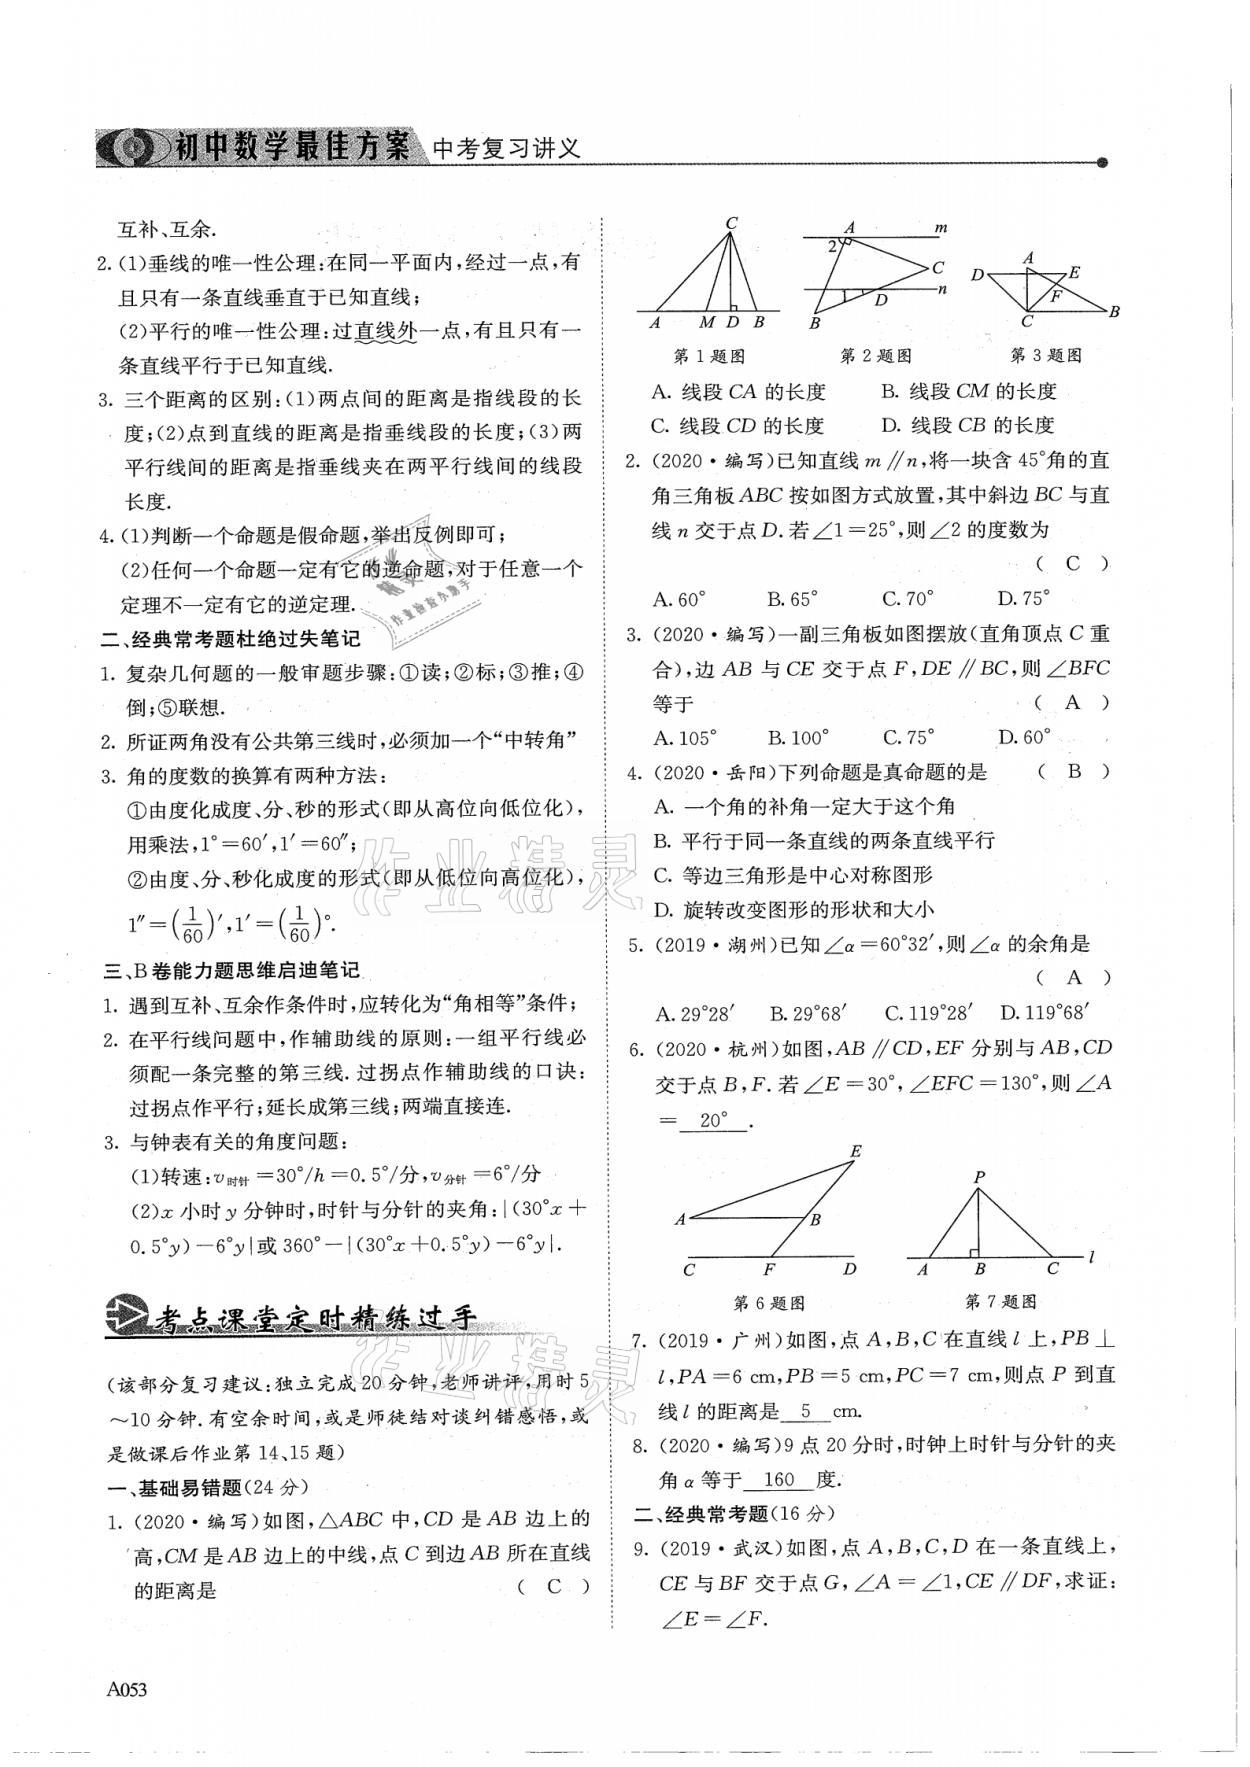 初中数学最佳方案 中考复习讲义
互补、互余.
2. (1)垂线的唯一性公理:在同一平面内,经过一点,有
且只有一条直线垂直于已知直线;
(2)平行的唯一性公理:过直线外一点,有且只有一
条直线平行于已知直线.
3. 三个距离的区别:(1)两点间的距离是指线段的长
度;(2)点到直线的距离是指垂线段的长度;(3)两
平行线间的距离是指垂线夹在两平行线间的线段
长度.
4. (1)判断一个命题是假命题,举出反例即可;
(2)任何一个命题一定有它的逆命题,对于任意一个
定理不一定有它的逆定理.
二、经典常考题杜绝过失笔记
1. 复杂几何题的一般审题步骤:①读;②标;③推;④
倒;⑤联想.
2. 所证两角没有公共第三线时,必须加一个“中转角”
3. 角的度数的换算有两种方法:
①由度化成度、分、秒的形式(即从高位向低位化),
用乘法,1°=60′,1′=60″;
②由度、分、秒化成度的形式(即从低位向高位化),
1″=(1/60)′,1′=(1/60)°.
三、B卷能力题思维启迪笔记
1. 遇到互补、互余作条件时,应转化为“角相等”条件;
2. 在平行线问题中,作辅助线的原则:一组平行线必
须配一条完整的第三线.过拐点作辅助线的口诀:
过拐点作平行;延长成第三线;两端直接连.
3. 与钟表有关的角度问题:
(1)转速:v时针=30°/h=0.5°/分,v分针=6°/分
(2)x 小时 y 分钟时,时针与分针的夹角:|(30°x+
0.5°y)-6°y|或 360°-|(30°x+0.5°y)-6°y|.
考点课堂定时精练过手
(该部分复习建议:独立完成20分钟,老师讲评,用时5
~10分钟.有空余时间,或是师徒结对谈纠错感悟,或
是做课后作业第14、15题)
一、基础易错题(24分)
1. (2020·编写)如图,△ABC 中,CD 是 AB 边上的
高,CM 是 AB 边上的中线,点 C 到边 AB 所在直线
的距离是 ( C )
C
A M D B
第1题图
A m
2
C
1 D n
B
第2题图
A
D E
F
C B
第3题图
A. 线段 CA 的长度 B. 线段 CM 的长度
C. 线段 CD 的长度 D. 线段 CB 的长度
2. (2020·编写)已知直线 m∥n,将一块含45°角的直
角三角板 ABC 按如图方式放置,其中斜边 BC 与直
线 n 交于点 D.若∠1=25°,则∠2 的度数为
( C )
A. 60° B. 65° C. 70° D. 75°
3. (2020·编写)一副三角板如图摆放(直角顶点 C 重
合),边 AB 与 CE 交于点 F,DE∥BC,则∠BFC
等于 ( A )
A. 105° B. 100° C. 75° D. 60°
4. (2020·岳阳)下列命题是真命题的是 ( B )
A. 一个角的补角一定大于这个角
B. 平行于同一条直线的两条直线平行
C. 等边三角形是中心对称图形
D. 旋转改变图形的形状和大小
5. (2019·湖州)已知∠α=60°32′,则∠α 的余角是
( A )
A. 29°28′ B. 29°68′ C. 119°28′ D. 119°68′
6. (2020·杭州)如图,AB∥CD,EF 分别与 AB,CD
交于点 B,F.若∠E=30°,∠EFC=130°,则∠A
= 20° .
E
A B
C F D
第6题图
P
A B C l
第7题图
7. (2019·广州)如图,点 A,B,C 在直线 l 上,PB⊥
l,PA=6 cm,PB=5 cm,PC=7 cm,则点 P 到直
线 l 的距离是 5 cm.
8. (2020·编写)9点20分时,时钟上时针与分针的夹
角 α 等于 160 度.
二、经典常考题(16分)
9. (2019·武汉)如图,点 A,B,C,D 在一条直线上,
CE 与 BF 交于点 G,∠A=∠1,CE∥DF,求证:
∠E=∠F.
A053
作业精灵
作业精灵
作业精灵
作业检查小助手